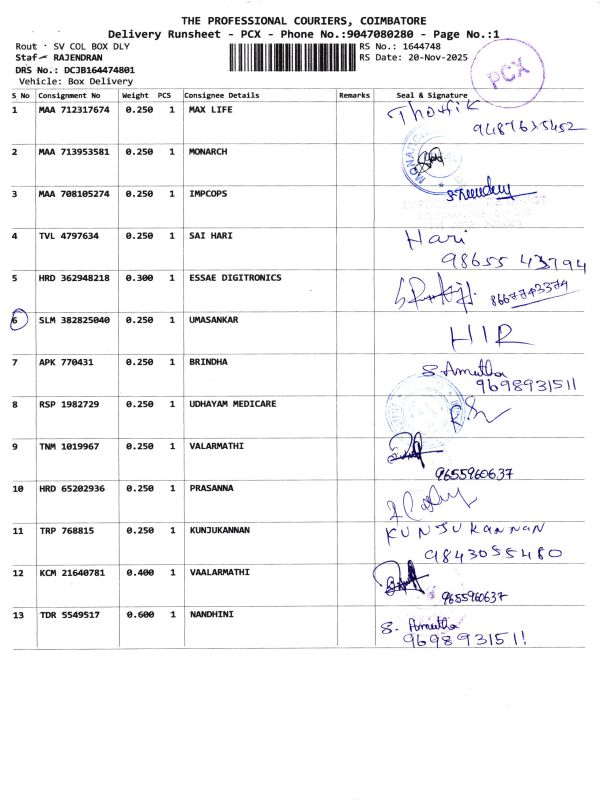 THE PROFESSIONAL COURIERS, COIMBATORE
Delivery Runsheet - PCX - Phone No.:9047080280 - Page No.:1
Rout : SV COL BOX DLY RS No.: 1644748
Staf RAJENDRAN RS Date: 20-Nov-2025
DRS No.: DCJB164474801
Vehicle: Box Delivery
PCX
S No Consignment No Weight PCS Consignee Details Remarks Seal & Signature
1 MAA 712317674 0.250 1 MAX LIFE
2 MAA 713953581 0.250 1 MONARCH
MONARCH
3 MAA 708105274 0.250 1 IMPCOPS
4 TVL 4797634 0.250 1 SAI HARI Hari
98655 43794
5 HRD 362948218 0.300 1 ESSAE DIGITRONICS
6 SLM 382825040 0.250 1 UMASANKAR HIR
7 APK 770431 0.250 1 BRINDHA S. Amutha
9698931511
8 RSP 1982729 0.250 1 UDHAYAM MEDICARE
9 TNM 1019967 0.250 1 VALARMATHI
9655960637
10 HRD 65202936 0.250 1 PRASANNA
11 TRP 768815 0.250 1 KUNJUKANNAN KUNJUKANNAN
9843055480
12 KCM 21640781 0.400 1 VAALARMATHI
9655960637
13 TDR 5549517 0.600 1 NANDHINI S. Amutha
9698931511